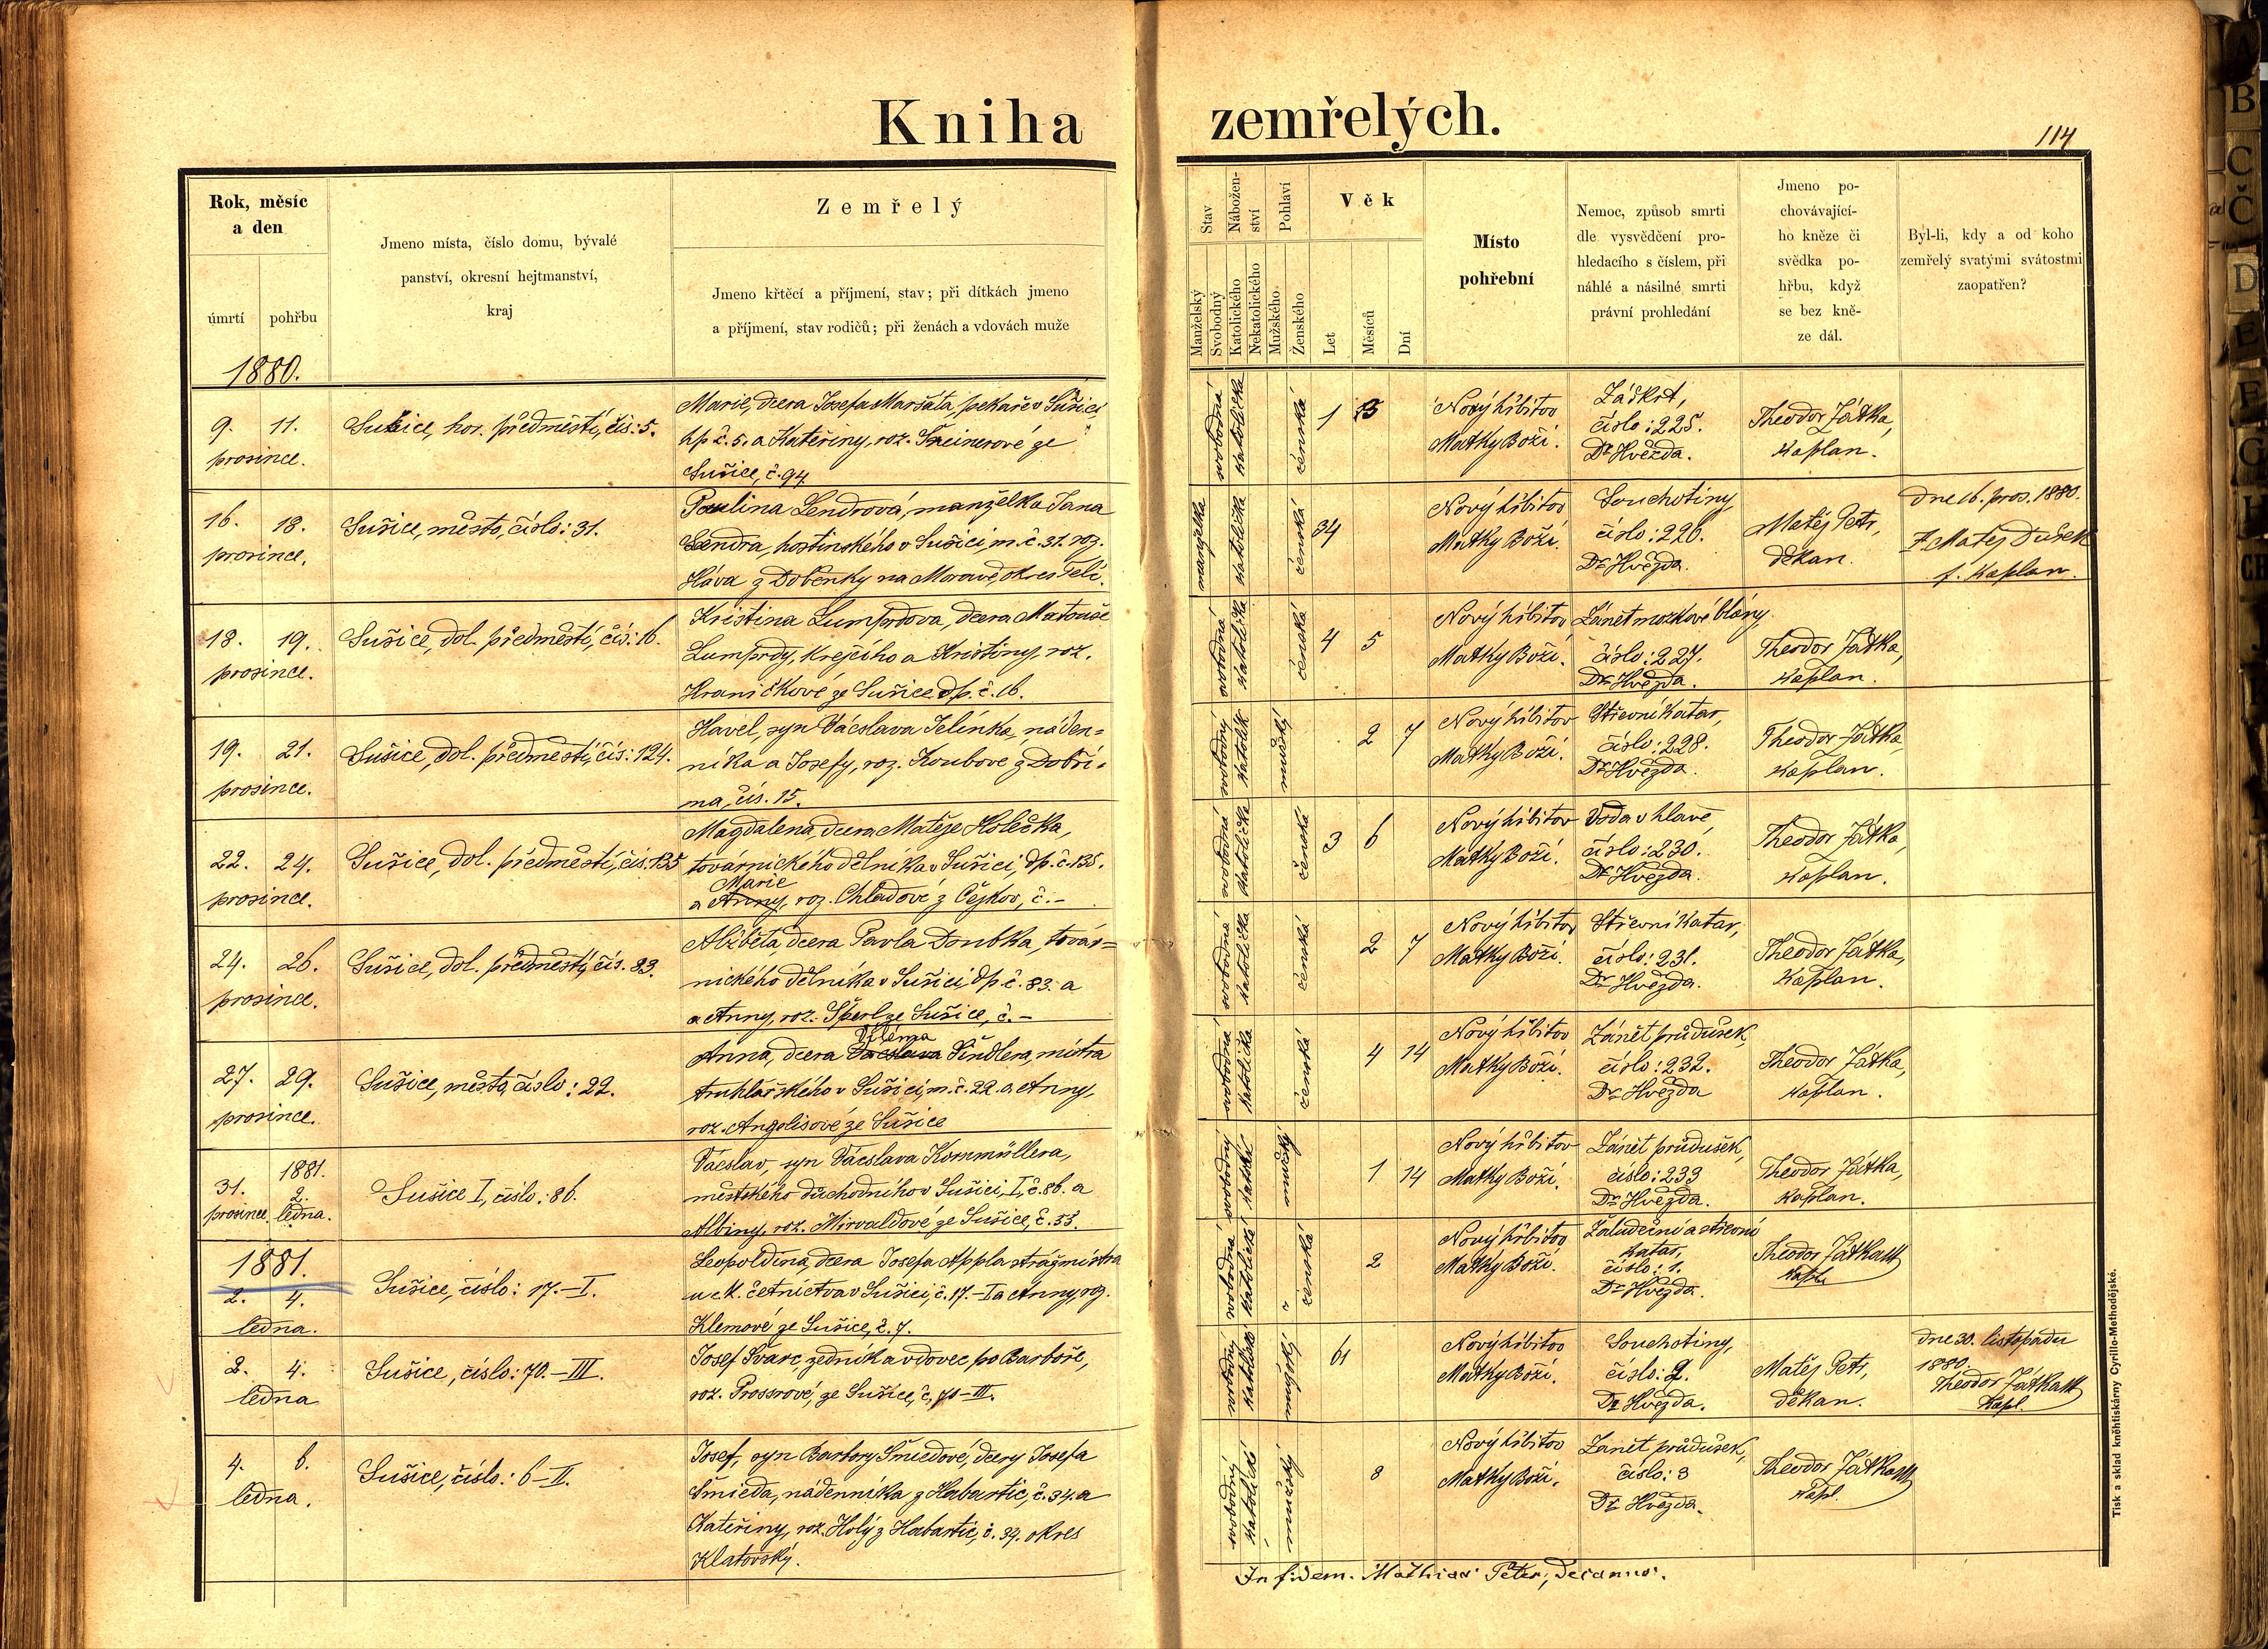 Kniha zemřelých.
114
Rok, měsíc a den
úmrtí
pohřbu
Jmeno místa, číslo domu, bývalé
panství, okresní hejtmanství,
kraj
Zemřelý
Jmeno křtěcí a příjmení, stav; při dítkách jmeno
a příjmení, stav rodičů; při ženách a vdovách muže
Stav
Manželský
Svobodný
Nábožen-
ství
Katolického
Nekatolického
Pohlaví
Mužského
Ženského
Věk
Let
Měsíců
Dní
Místo
pohřební
Nemoc, způsob smrti
dle vysvědčení pro-
hledacího s číslem, při
náhlé a násilné smrti
právní prohledání
Jmeno po-
chovávající-
ho kněze či
svědka po-
hřbu, když
se bez kně-
ze dál.
Byl-li, kdy a od koho
zemřelý svatými svátostmi
zaopatřen?
1880.
9. 11.
prosince.
Sušice, hor. předměstí, čís: 5.
Marie, dcera Josefa Maršáta, pekaře v Sušici,
hp č. 5. a Kateřiny, roz. ze
Sušice, č. 94
svobodná
katolička
ženská
1
Nový hřbitov
Matky Boží.
Záškrt,
číslo: 225.
Dr Hvězda.
Theodor Játka,
kaplan.
16. 18.
prosince.
Sušice, město, číslo: 31.
Paulina Lendrová, manželka Jana
Lendra, hostinského v Sušici, m. č. 31. roz.
Háva z Doběnky na Moravě, okres Telč.
manželka
katolička
ženská
34
Nový hřbitov
Matky Boží.
Souchotiny,
číslo: 226.
Dr Hvězda.
Matěj Petr,
děkan.
dne 16. pros. 1880.
Matěj Dušek
f. kaplan.
18. 19.
prosince.
Sušice, dol. předměstí, čís: 16.
Kristina Lumprdova, dcera Matouše
Lumprdy, krejčího a Kristiny, roz.
Hraničkové ze Sušice dp. č. 16.
svobodná
katolička
ženská
4 5
Nový hřbitov
Matky Boží.
Zánět mozkové blány,
číslo: 227.
Dr Hvězda.
Theodor Játka,
kaplan.
19. 21.
prosince.
Sušice, dol. předměstí, čís: 124.
Havel, syn Václava Jelínka, náden=
níka a Josefy, roz. Koubove z Dobři-
ma, čís. 15.
svobodný
katolík
mužský
2 7
Nový hřbitov
Matky Boží.
Střevní katar,
číslo: 228.
Dr Hvězda.
Theodor Játka,
kaplan.
22. 24.
prosince.
Sušice, dol. předměstí, čís. 135
Magdalena, dcera Matěje Holečka,
továrnického dělníka v Sušici, dp. č. 135.
Marie
a Anny, roz. Chladové z Čejkov, č. -
svobodná
katolička
ženská
3 6
Nový hřbitov
Matky Boží.
Voda v hlavě,
číslo: 230.
Dr Hvězda.
Theodor Játka,
kaplan.
24. 26.
prosince.
Sušice, dol. předměstí, čís. 83.
Alžběta, dcera Pavla Doubka, továr=
nického dělníka v Sušici dp č. 83. a
a Anny, roz. Šperl ze Sušice, č. -
svobodná
katolička
ženská
2 7
Nový hřbitov
Matky Boží.
Střevní katar,
číslo: 231.
Dr Hvězda.
Theodor Játka,
kaplan.
27. 29.
prosince.
Sušice, město, číslo: 22.
Viléma
Anna, dcera Václava Šindlera, mistra
truhlářského v Sušici, m. č. 22. a Anny,
roz. Angolisové ze Sušice
svobodná
katolička
ženská
4 14
Nový hřbitov
Matky Boží.
Zánět průdušek,
číslo: 232.
Dr Hvězda
Theodor Játka,
kaplan.
1881.
31. 2.
prosince. ledna.
Sušice I, číslo: 86.
Václav, syn Václava Kornmüllera,
městského důchodního v Sušici, I, č. 86. a
Albiny, roz. Mirvaldové ze Sušice, č. 53.
svobodný
mužský
1 14
Nový hřbitov
Matky Boží.
Zánět průdušek,
číslo: 233
Dr Hvězda.
Theodor Játka,
kaplan.
1881.
2. 4.
ledna.
Sušice, číslo: 17.-I.
Leopoldina, dcera Josefa Appla strážmistra
u c. k. četnictva v Sušici, č. 17.-I a Anny, roz.
Klemové ze Sušice, č. 7.
svobodná
katolička
ženská
2
Nový hřbitov
Matky Boží.
Žaludeční a střevní
katar,
číslo: 1.
Dr Hvězda.
Theodor Játka
kapl.
2. 4.
ledna
Sušice, číslo: 70.-III.
Josef Švarc, zedník a vdovec po Barboře,
roz. Prossrové, ze Sušice, č. 70-III.
svobodný
mužský
61
Nový hřbitov
Matky Boží.
Souchotiny,
číslo: 2.
Dr Hvězda.
Matěj Petr,
děkan.
dne 30. listopadu
1880.
Theodor Játka
kapl.
4. 6.
ledna.
Sušice, číslo: 6-II.
Josef, syn Barbory Šmiedové, dcery Josefa
Šmieda, nádenníka z Habartic, č. 34. a
Kateřiny, roz. Holý z Habartic, č. 34. okres
Klatovský.
svobodný
mužský
8
Nový hřbitov
Matky Boží.
Zánět průdušek,
číslo: 3
Dr Hvězda.
Theodor Játka
kapl.
In fidem. Mathias Peter, Decanus.
Tisk a sklad kněhtiskárny Cyrillo-Methodějské.
B
C
Č
D
E
F
G
CH